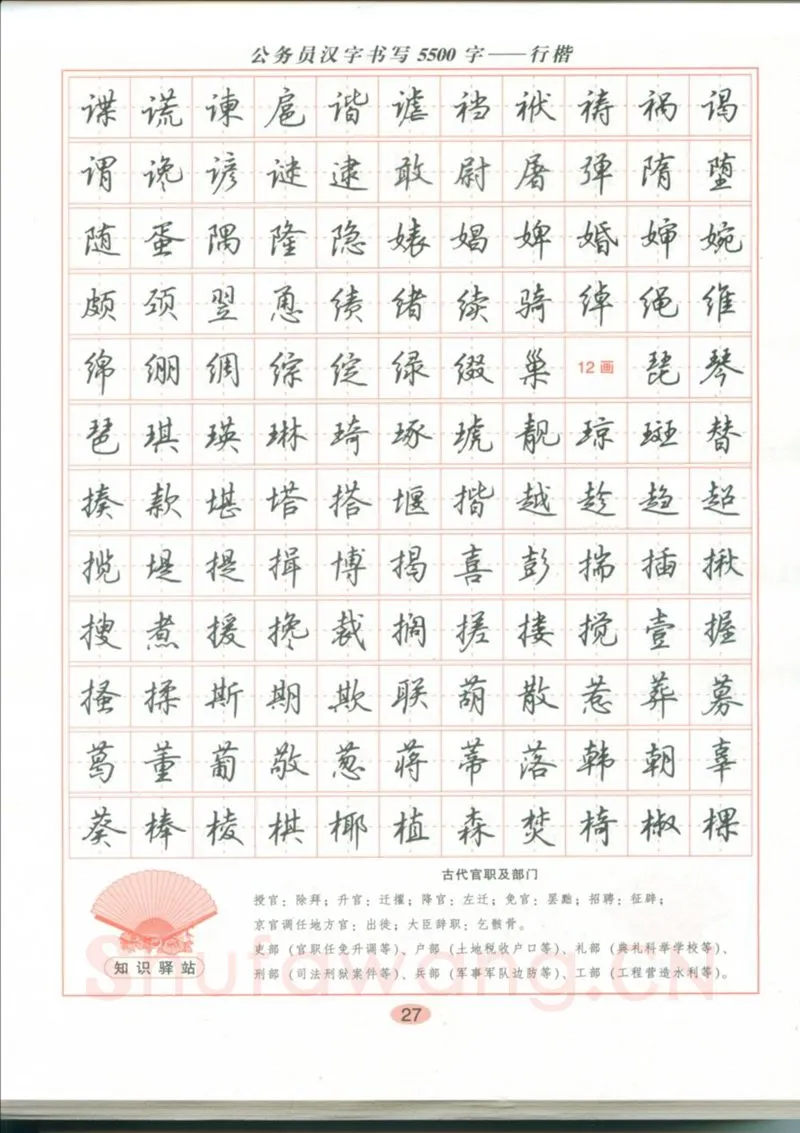 公务员汉字书写5500字——行楷
谍 谎 谏 扈 谐 谑 裆 袱 祷 祸 谒
谓 谗 谚 谜 逮 敢 尉 屠 弹 隋 堕
随 蛋 隅 隆 隐 婊 娼 婢 婚 婶 婉
颇 颈 翌 恿 绩 绪 续 骑 绰 绳 维
绵 绷 绸 综 绽 绿 缀 巢 12画 琵 琴
琶 琪 瑛 琳 琦 琢 琥 靓 琼 斑 替
揍 款 堪 塔 搭 堰 揩 越 趁 趋 超
揽 堤 提 揖 博 揭 喜 彭 揣 插 揪
搜 煮 援 搀 裁 搁 搓 搂 搅 壹 握
搔 揉 斯 期 欺 联 葫 散 惹 葬 募
葛 董 葡 敬 葱 蒋 蒂 落 韩 朝 辜
葵 棒 棱 棋 椰 植 森 焚 椅 椒 棵
古代官职及部门
授官：除拜；升官：迁擢；降官：左迁；免官：罢黜；招聘：征辟；
京官调任地方官：出徙；大臣辞职：乞骸骨。
吏部（官职任免升调等）、户部（土地税收户口等）、礼部（典礼科举学校等）、
刑部（司法刑狱案件等）、兵部（军事军队边防等）、工部（工程营造水利等）。
知识驿站
Shufawang.CN
27